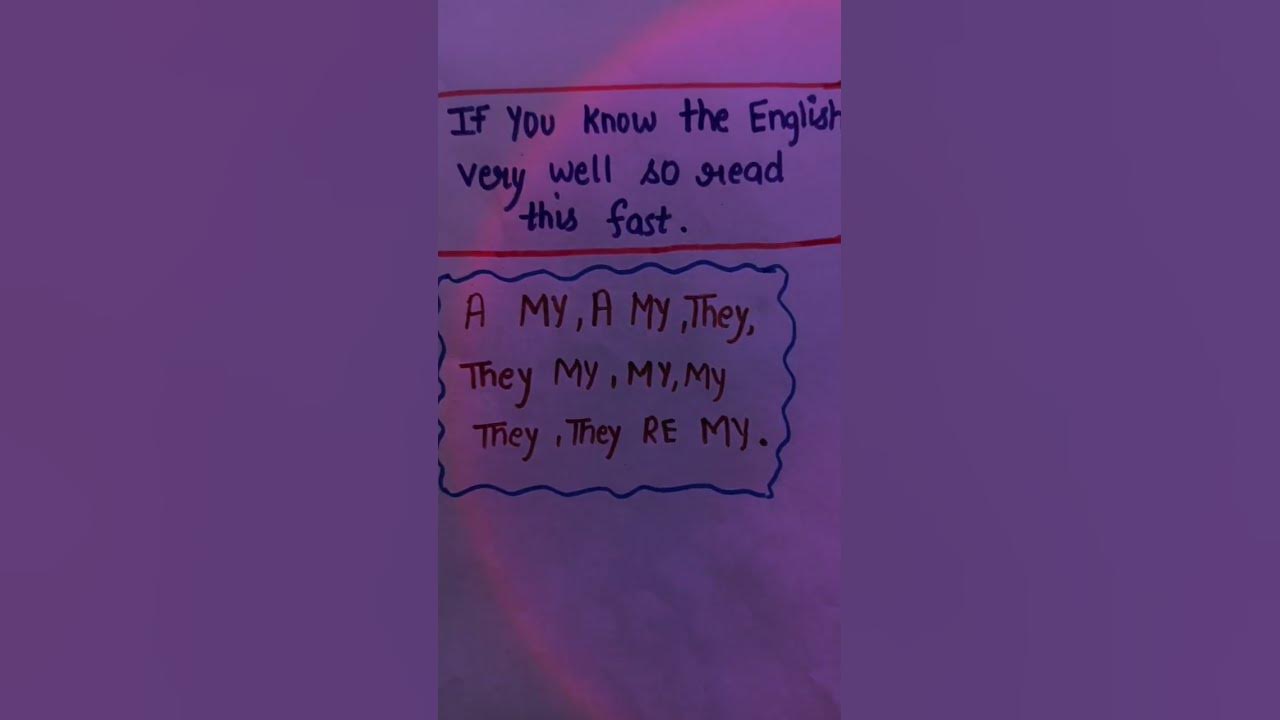 If You know the English
very well so read
this fast.
A MY, A MY, They,
They MY, MY, My
They, They RE MY.